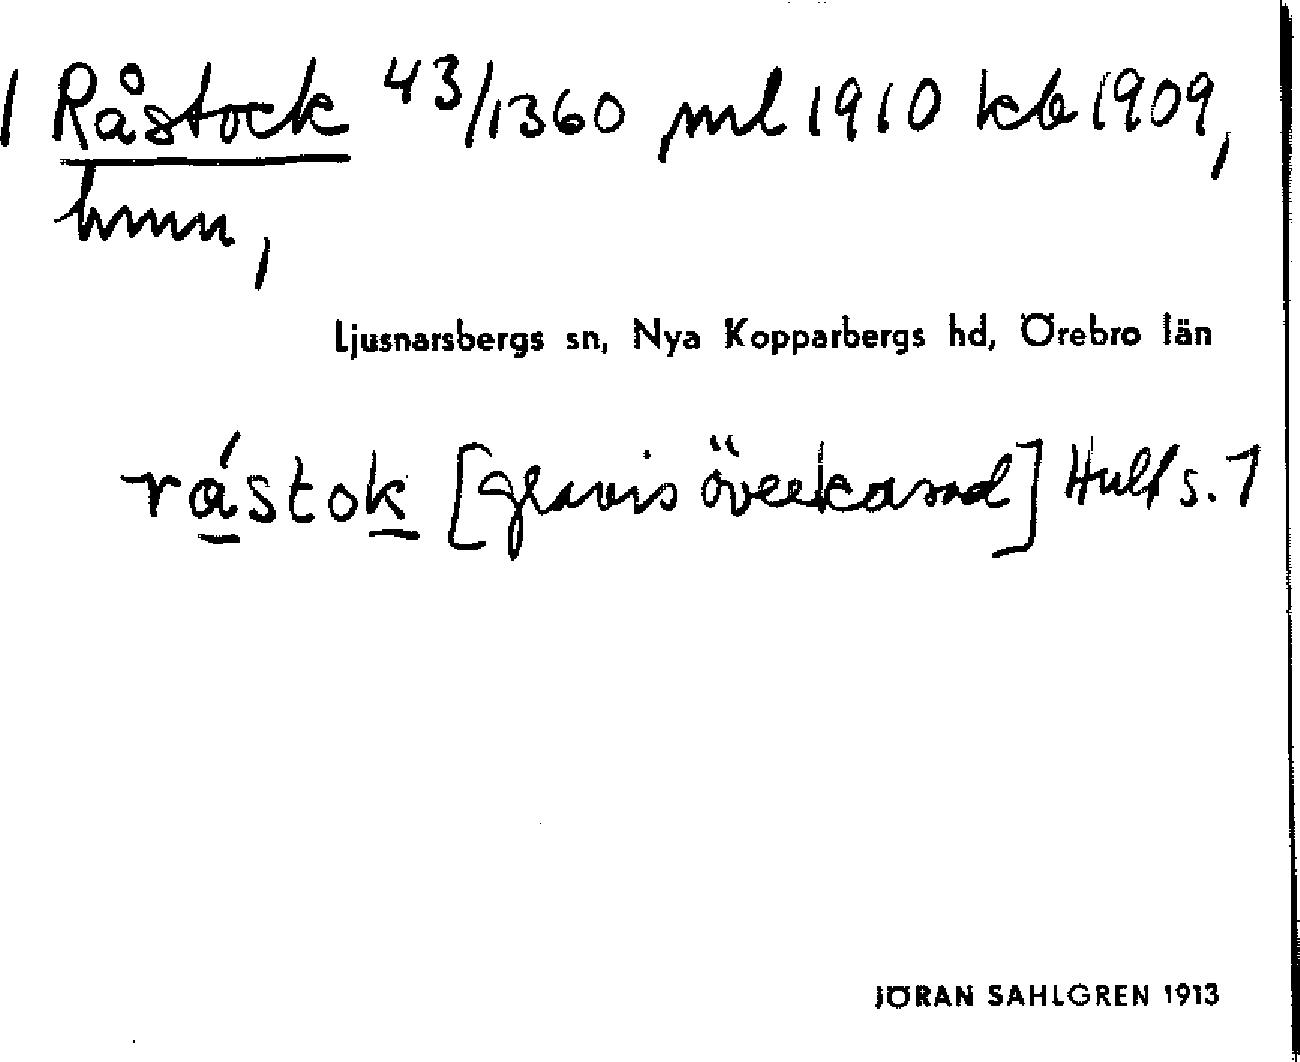 1 Råstock 43/1360 ml 1910 kb 1909,
hmn,
Ljusnarsbergs sn, Nya Kopparbergs hd, Örebro län
rástok [gravis överkorsad] Hult s. 7
JÖRAN SAHLGREN 1913